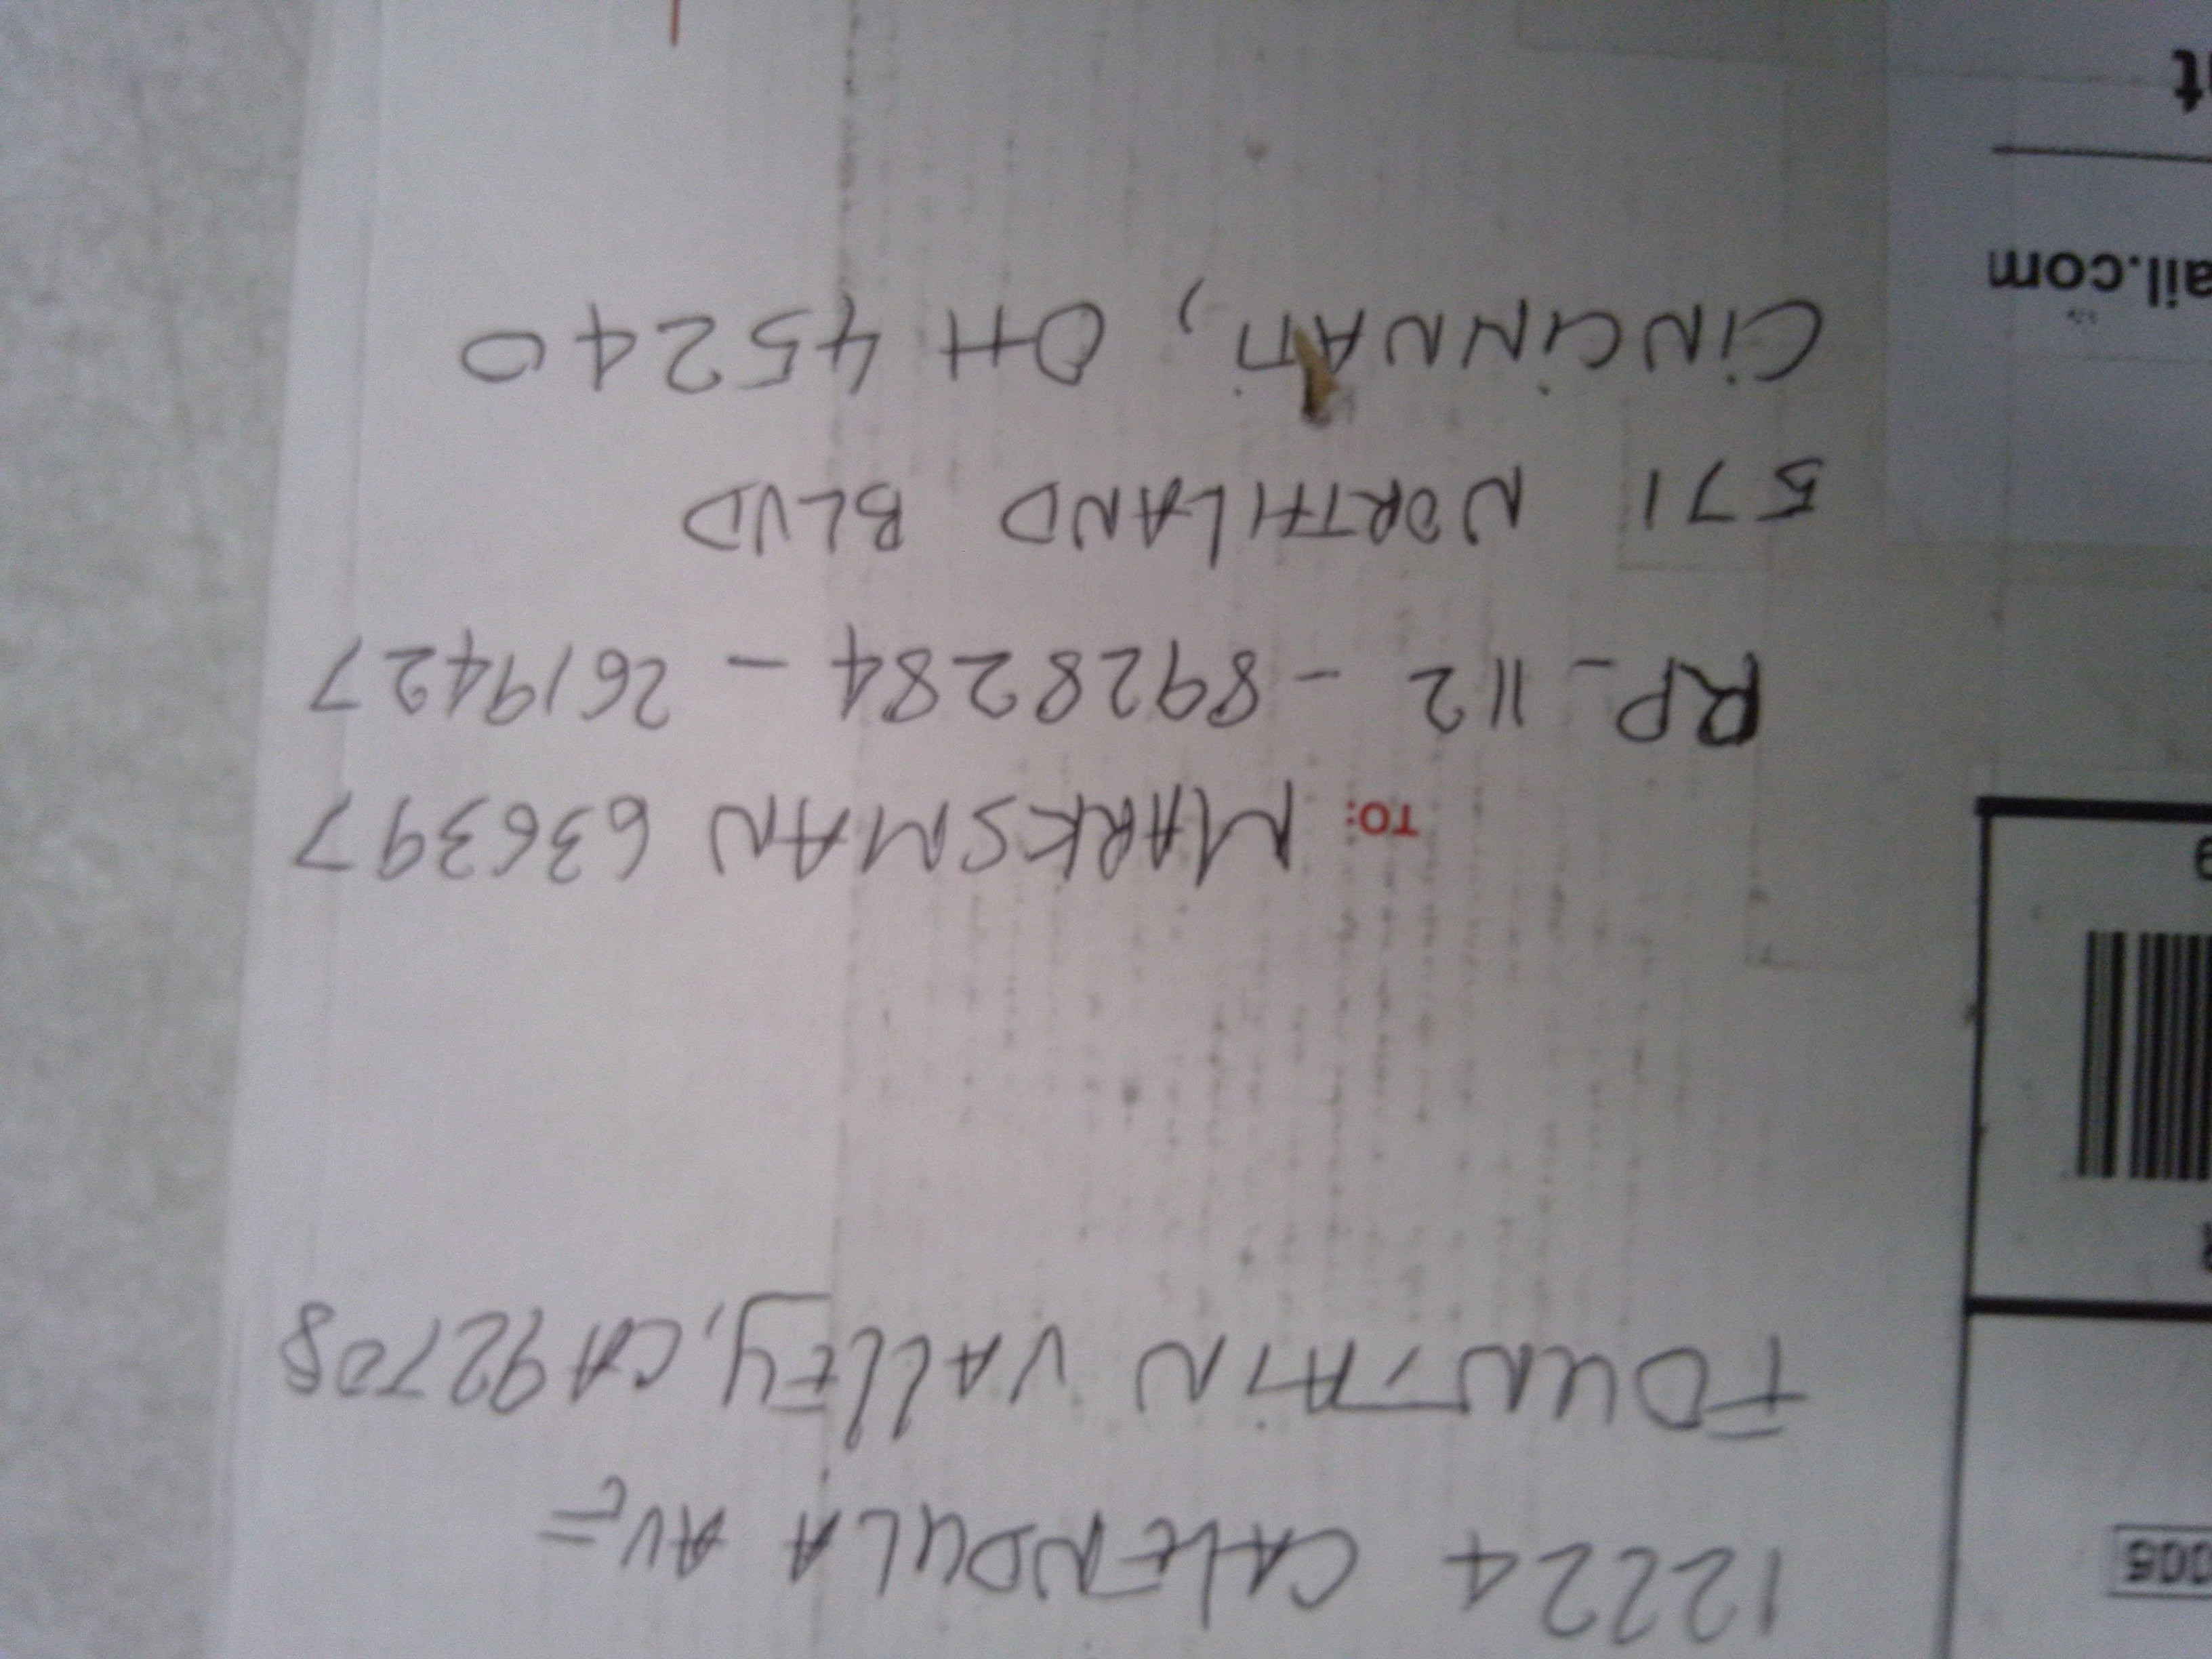 12224 CALENDULA AVE
FOUNTAIN VALLEY, CA 92708
TO: MARKSMAN 636397
RP-112-8928284-2619427
571 NORTHLAND BLVD
CINCINNATI, OH 45240
005
R
9
ail.com
t